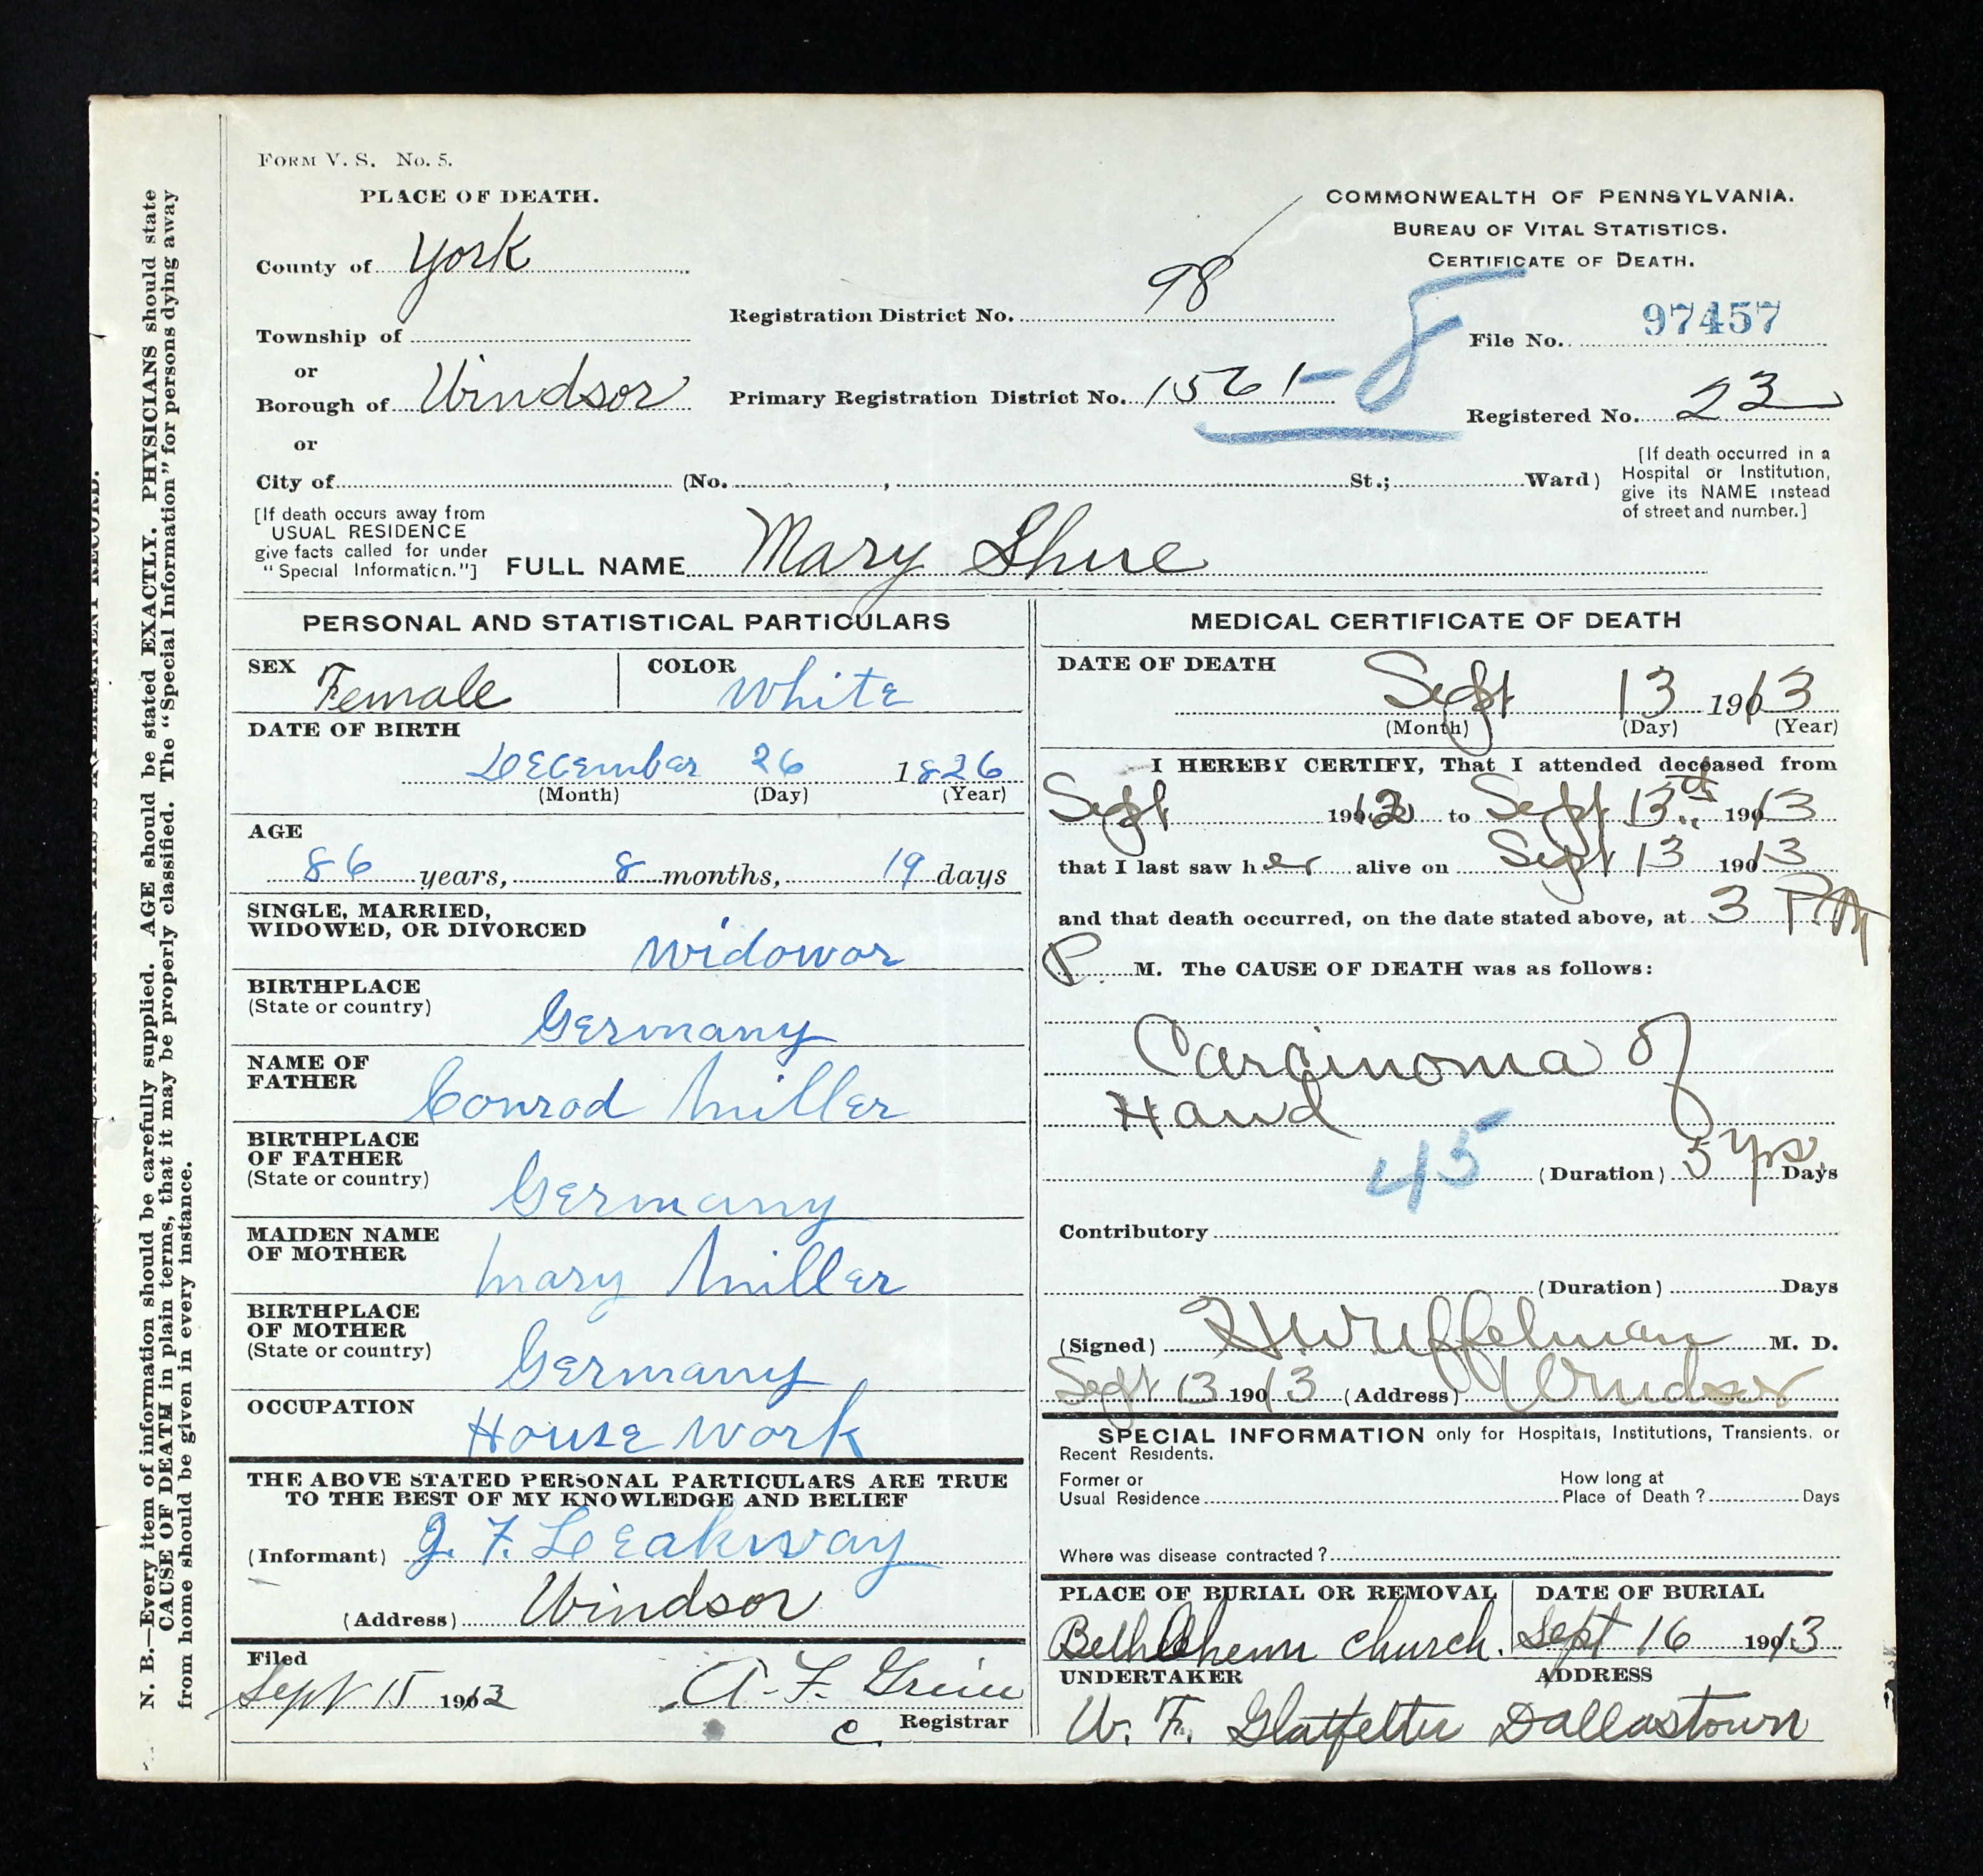 FORM V. S. No. 5.
PLACE OF DEATH.
County of York
Township of
or
Borough of Windsor
or
City of (No. , St.; Ward)
COMMONWEALTH OF PENNSYLVANIA.
BUREAU OF VITAL STATISTICS.
CERTIFICATE OF DEATH.
Registration District No. 98
File No. 97457
Primary Registration District No. 1561-8
Registered No. 23
[If death occurred in a
Hospital or Institution,
give its NAME instead
of street and number.]
[If death occurs away from
USUAL RESIDENCE
give facts called for under
"Special Information."]
FULL NAME Mary Shue
PERSONAL AND STATISTICAL PARTICULARS
SEX Female COLOR White
DATE OF BIRTH
December 26 1826
(Month) (Day) (Year)
AGE
86 years, 8 months, 19 days
SINGLE, MARRIED,
WIDOWED, OR DIVORCED
Widowor
BIRTHPLACE
(State or country)
Germany
NAME OF
FATHER
Conrad Miller
BIRTHPLACE
OF FATHER
(State or country)
Germany
MAIDEN NAME
OF MOTHER
Mary Miller
BIRTHPLACE
OF MOTHER
(State or country)
Germany
OCCUPATION
House Work
THE ABOVE STATED PERSONAL PARTICULARS ARE TRUE
TO THE BEST OF MY KNOWLEDGE AND BELIEF
(Informant) J. F. Leakway
(Address) Windsor
Filed
Sept 15 1913 A. F. Grim
Registrar
MEDICAL CERTIFICATE OF DEATH
DATE OF DEATH
Sept 13 1913
(Month) (Day) (Year)
I HEREBY CERTIFY, That I attended deceased from
Sept to Sept 13th 1913
that I last saw her alive on Sept 13 1913
and that death occurred, on the date stated above, at 3 PM
P M. The CAUSE OF DEATH was as follows:
Carcinoma of
Hand
45 (Duration) 5 yrs. Days
Contributory
(Duration) Days
(Signed) M. D.
Sept 13 1913 (Address) Windsor
SPECIAL INFORMATION only for Hospitals, Institutions, Transients, or
Recent Residents.
Former or
Usual Residence
How long at
Place of Death? Days
Where was disease contracted?
PLACE OF BURIAL OR REMOVAL
Bethlehem church.
DATE OF BURIAL
Sept 16 1913
UNDERTAKER ADDRESS
W. F. Glatfelter Dallastown
N. B.—Every item of information should be carefully supplied. AGE should be stated EXACTLY. PHYSICIANS should state
CAUSE OF DEATH in plain terms, that it may be properly classified. The "Special Information" for persons dying away
from home should be given in every instance.